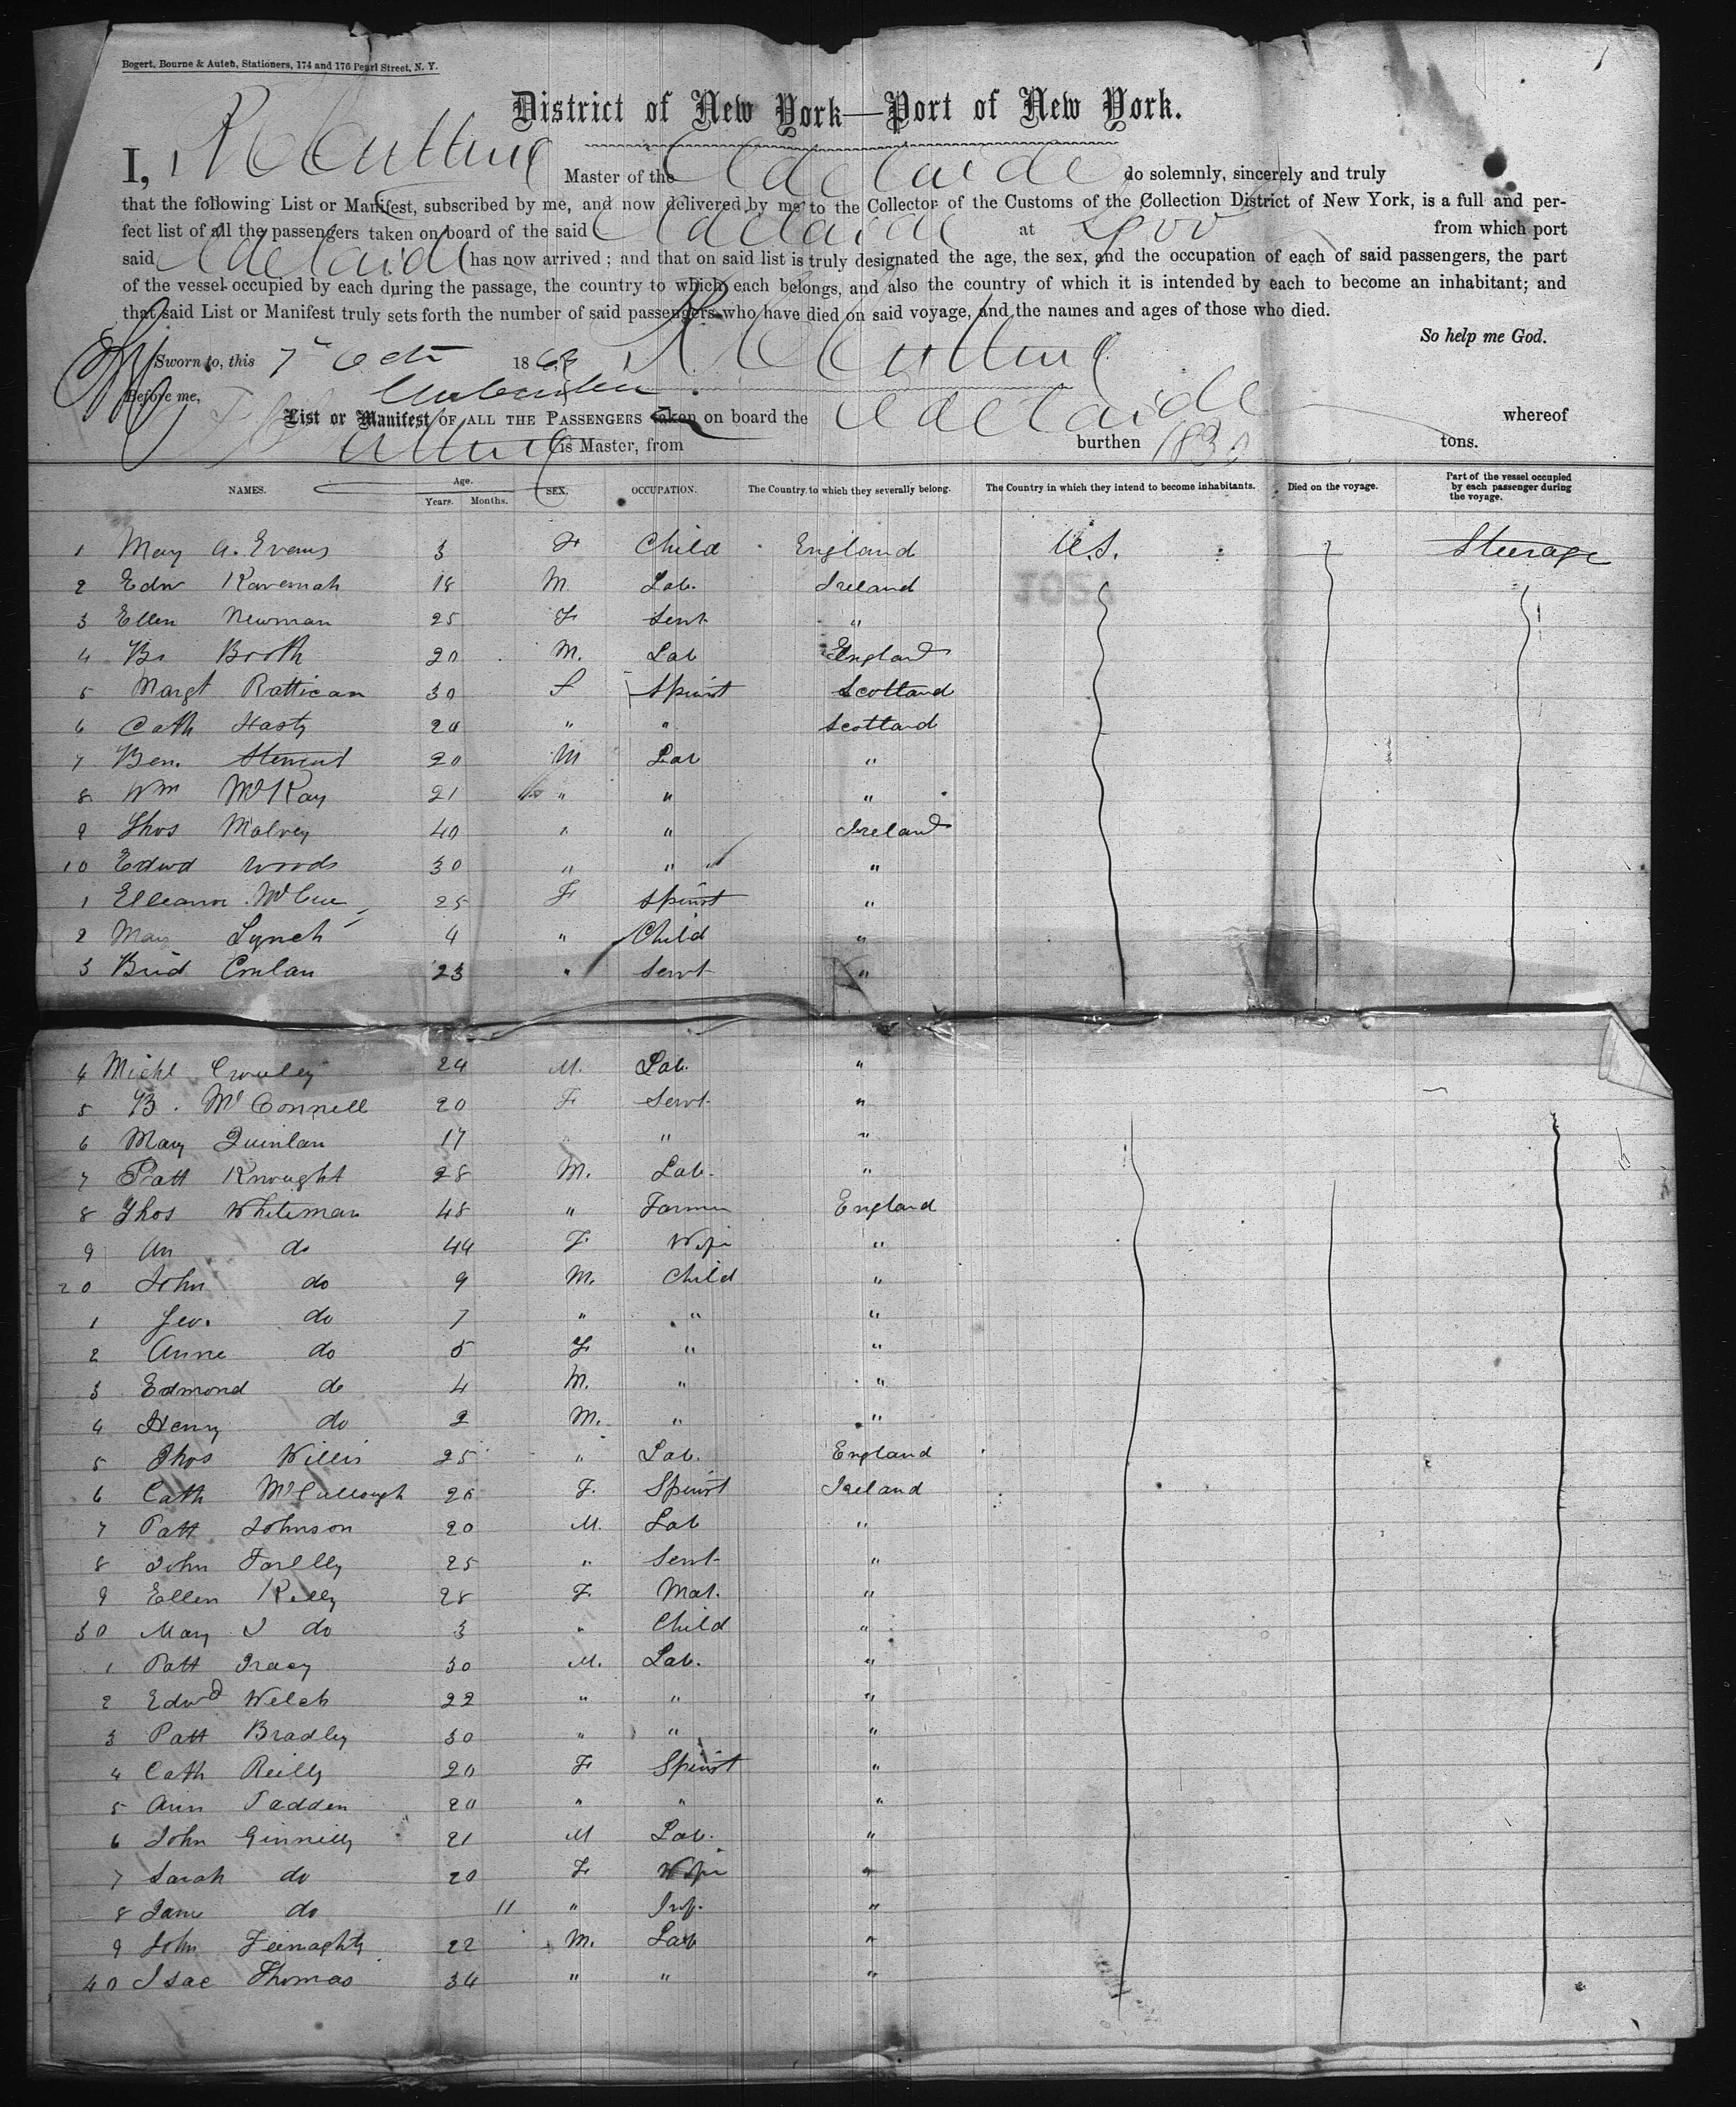 Bogert, Bourne & Auten, Stationers, 174 and 176 Pearl Street, N. Y.
1
District of New York—Port of New York.
I, R C Cutting Master of the Adelaide do solemnly, sincerely and truly
that the following List or Manifest, subscribed by me, and now delivered by me to the Collector of the Customs of the Collection District of New York, is a full and per-
fect list of all the passengers taken on board of the said Adelaide at Lpool from which port
said Adelaide has now arrived; and that on said list is truly designated the age, the sex, and the occupation of each of said passengers, the part
of the vessel occupied by each during the passage, the country to which each belongs, and also the country of which it is intended by each to become an inhabitant; and
that said List or Manifest truly sets forth the number of said passengers who have died on said voyage, and the names and ages of those who died.
So help me God.
Sworn to, this 7 Oct 1863 R C Cutting
Before me,
List or Manifest OF ALL THE PASSENGERS taken on board the Adelaide whereof
Cutting is Master, from burthen 1830 tons.
NAMES. Age. Years. Months. SEX. OCCUPATION. The Country to which they severally belong. The Country in which they intend to become inhabitants. Died on the voyage. Part of the vessel occupied by each passenger during the voyage.
1 Mary A. Evans 3 F Child England U.S. Steerage
2 Edw Kavernah 18 M. Lab. Ireland
3 Ellen Newman 25 F Servt "
4 Booth 20 M. Lab England
5 Margt Rattican 30 F Spinst Scotland
6 Cath Hasty 20 " " Scotland
7 Ben. Stewart 20 M Lab "
8 Wm McKay 21 " " "
9 Thos Malvey 40 " " Ireland
10 Edwd Woods 30 " " "
1 Elleanor McCue 25 F Spinst "
2 Mary Lynch 4 " Child "
3 Brid Conlan 23 " Servt "
4 Michl Crowley 24 M. Lab. "
5 B. McConnell 20 F Servt "
6 Mary Quinlan 17 " " "
7 Patt Knought 28 M. Lab. "
8 Thos Whiteman 48 " Farmer England
9 An do 44 F Wife "
20 John do 9 M. Child "
1 Geo. do 7 " " "
2 Anne do 5 F " "
3 Edmond do 4 M. " "
4 Henry do 2 M. " "
5 Thos Willis 25 " Lab. England
6 Cath McCullough 20 F. Spinst Ireland
7 Patt Johnson 20 M. Lab "
8 John Farelly 25 " Servt "
9 Ellen Kelly 28 F. Mat. "
30 Mary J do 3 " Child "
1 Patt Tracy 30 M. Lab. "
2 Edwd Welch 22 " " "
3 Patt Bradley 30 " " "
4 Cath Reilly 20 F Spinst "
5 Ann Padden 20 " " "
6 John Ginnelly 21 M Lab. "
7 Sarah do 20 F Wife "
8 Jane do 11 " Inf. "
9 John Feenaghty 22 M. Lab "
40 Isac Thomas 34 " " "